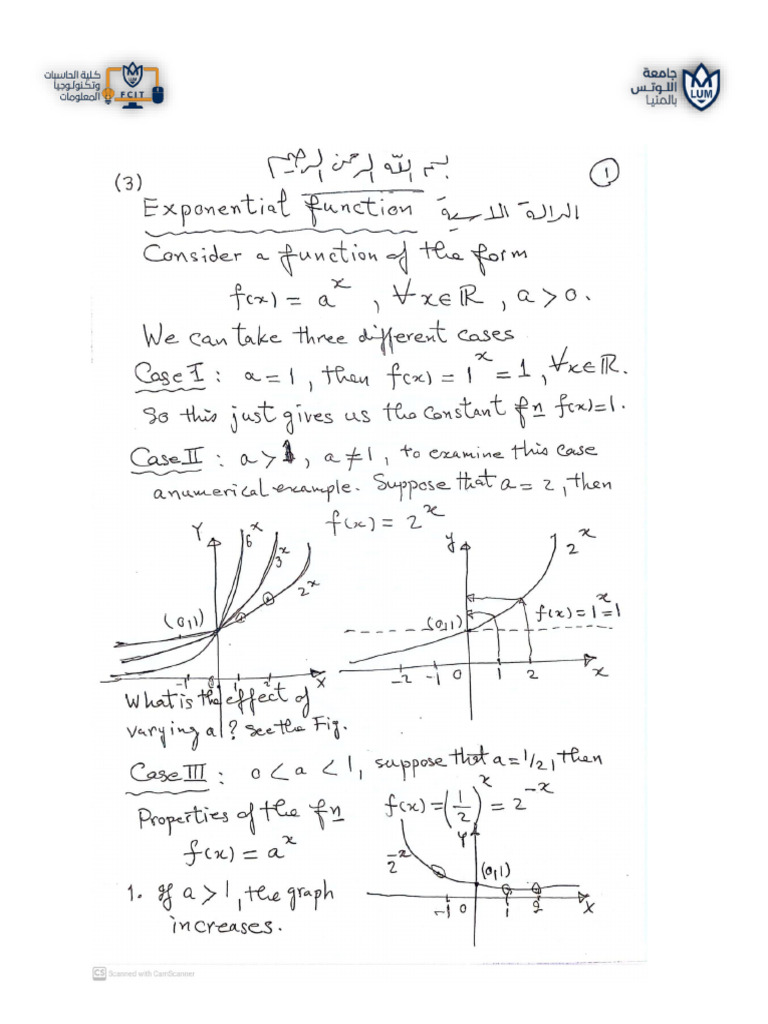 كلية الحاسبات
وتكنولوجيا
المعلومات
LUM
FCIT
جامعة
اللوتس
بالمنيا
LUM
بسم الله الرحمن الرحيم
(3)
1
Exponential function الدالة الاسية
Consider a function of the form
f(x) = a^x , ∀x∈ℝ , a > 0.
We can take three different cases
Case I : a = 1, then f(x) = 1^x = 1, ∀x∈ℝ.
So this just gives us the constant fn f(x)=1.
Case II : a > 1, a ≠ 1, to examine this case
a numerical example. Suppose that a = 2, then
f(x) = 2^x
Y
6^x
3^x
2^x
(0,1)
-1 0 1 2 X
y
2^x
f(x) = 1^x = 1
(0,1)
-2 -1 0 1 2 x
What is the effect of
varying a!? See the Fig.
Case III : 0 < a < 1, suppose that a = 1/2, then
Properties of the fn
f(x) = (1/2)^x = 2^-x
f(x) = a^x
Y
2^-x
(0,1)
-1 0 1 2 X
1. If a > 1, the graph
increases.
CS Scanned with CamScanner